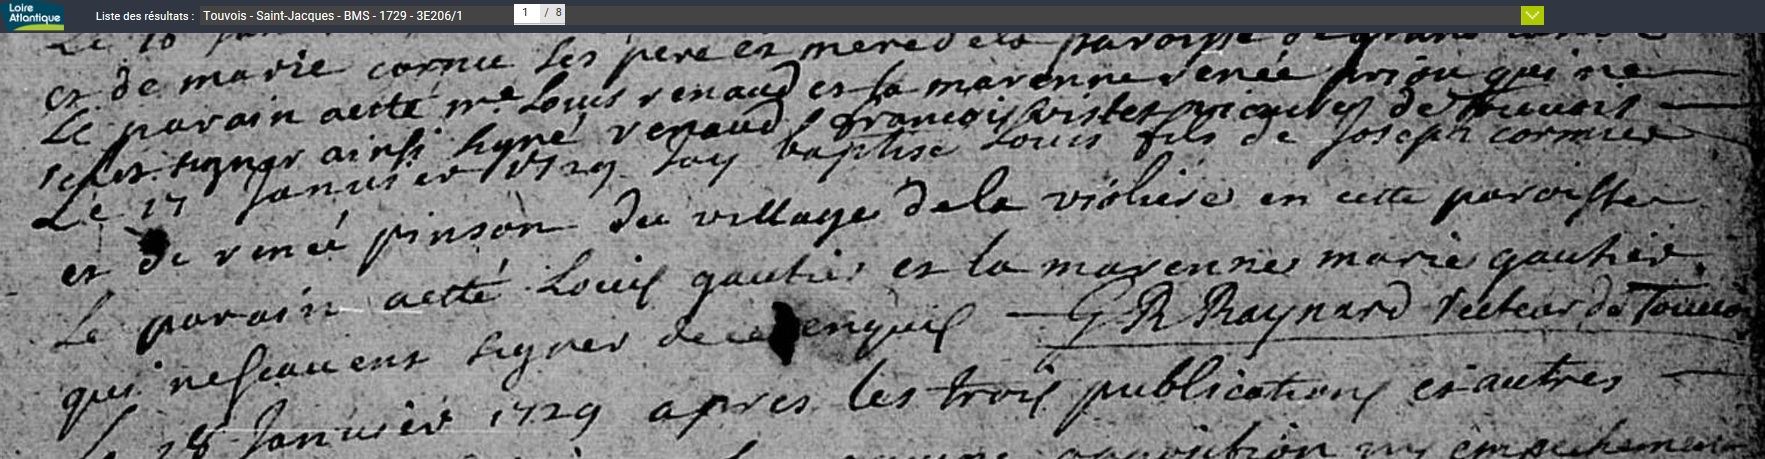 Loire
Atlantique
Liste des résultats : Touvois - Saint-Jacques - BMS - 1729 - 3E206/1 1 / 8
et de marie cornu ses pere et mere de la paroisse de
Le parain a etté mre Louis renaud et la marenne renée priou qui ne
scet signer ainsi signé renaud françois de Touvois
Le 17 Janvier 1729 Jay baptise Louis fils de Joseph cormier
et de renée pinson du village de la violiere en cette paroisse
Le parain a etté Louis gautier et la marenne marie gautier
qui ne scauent signer de ce enquis G R Raynard recteur de Touvois
Le 18 Janvier 1729 apres les trois publications et autres
opposition ny empechement